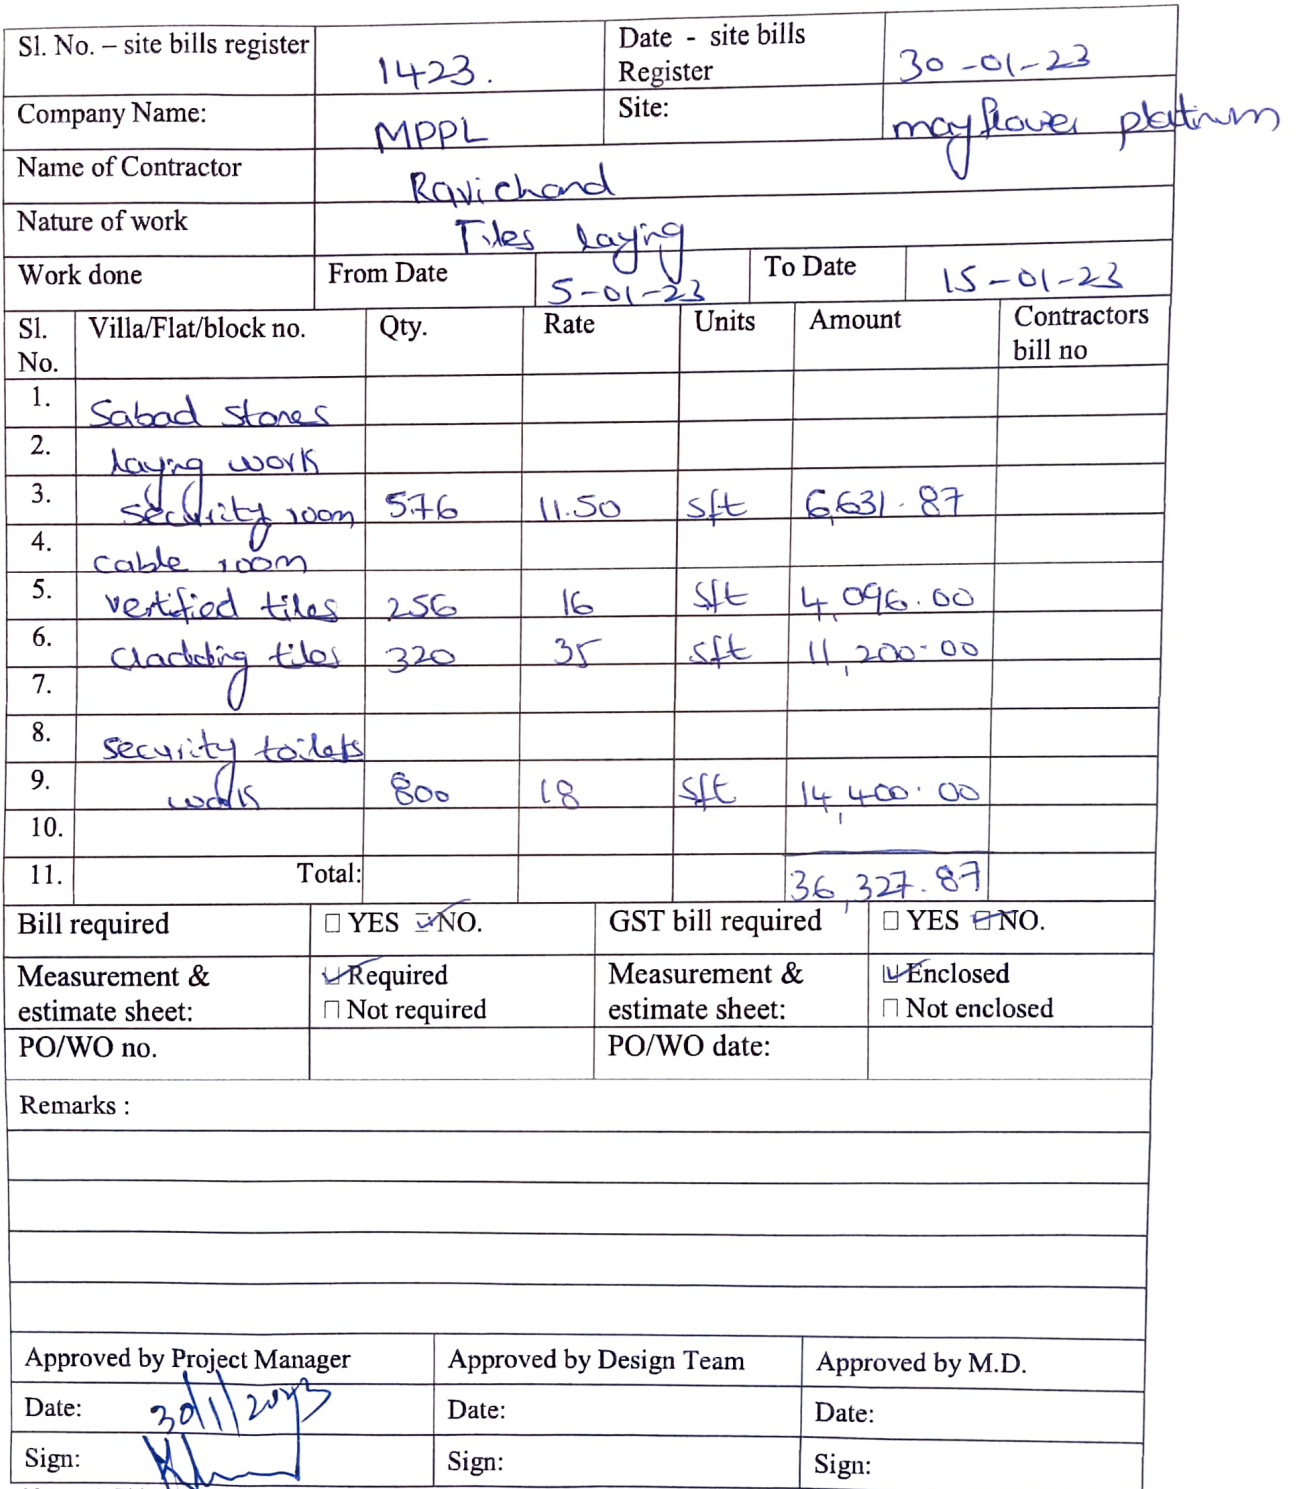 Sl. No. – site bills register 1423. Date - site bills Register 30-01-23
Company Name: MPPL Site: mayflower platinum
Name of Contractor Ravichand
Nature of work Tiles laying
Work done From Date 5-01-23 To Date 15-01-23
Sl. No. Villa/Flat/block no. Qty. Rate Units Amount Contractors bill no
1. Sabad stones
2. laying work
3. security room 576 11.50 sft 6,631.87
4. cable room
5. vertified tiles 256 16 sft 4,096.00
6. cladding tiles 320 35 sft 11,200.00
7.
8. security toilets
9. work 800 18 sft 14,400.00
10.
11. Total: 36,327.87
Bill required ☐ YES ☑ NO. GST bill required ☐ YES ☑ NO.
Measurement & estimate sheet: ☑ Required Measurement & estimate sheet: ☑ Enclosed
☐ Not required ☐ Not enclosed
PO/WO no. PO/WO date:
Remarks :
Approved by Project Manager Approved by Design Team Approved by M.D.
Date: 30/1/2023 Date: Date:
Sign: Sign: Sign: